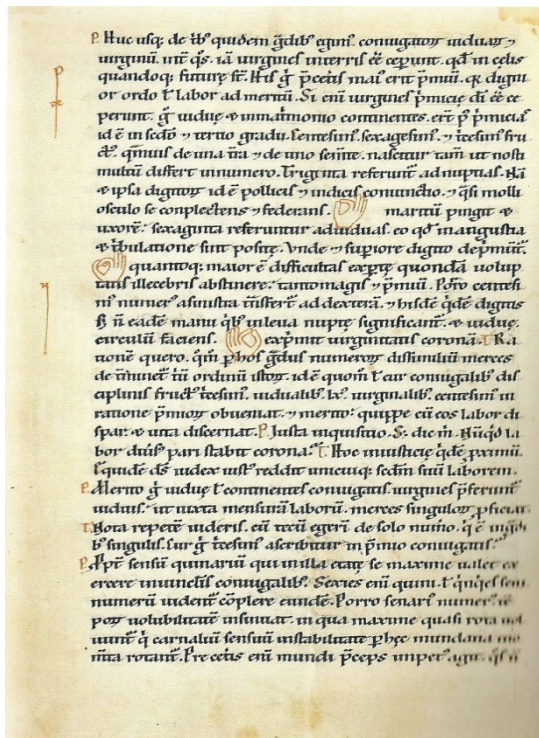 P. Huc usq; de trib' quidem gdib' egim'. coniugatoꝝ uiduaꝝ ⁊
uirginũ. uñt q̃s. ia uirgines in terris ẽẽ ceperunt. qđ in celis
quandoq; future st̃. His g̃ p̃ceris mai' erit p̃miũ. qr digni
or ordo t̃ labor ad meritũ. Si eni uirgines p̃micię dĩ ẽẽ ce
perunt. g̃ uidue ⁊ in matrimonio continentes. ert̃ p' p̃micias
id ẽ in scđo ⁊ tertio gradu. Centesim'. sexagesim'. ⁊ t̃cesim' fru
ct'. q̃muis de una t̃ra ⁊ de uno semĩte. nascetur tam̃ ut nosti
multũ differt in numero. Triginta referunt̃ ad nuptias. Nã
⁊ ipsa digitoꝝ id ẽ pollicis ⁊ indicis coniunctio. ⁊ q̃si molli
osculo se conplectens ⁊ federans. maritũ pingit ⁊
uxorẽ. sexaginta referuntur ad uiduas. eo qđ in angustia
⁊ tribulatione sint positę. Vnde ⁊ superiore digito dep̃munt̃.
quantoq; maior ẽ difficultas expertę quondã uolup
tatis illecebris abstinere. tanto magis ⁊ p̃miũ. Porro centesi
m' numer' a sinistra t̃nsfert̃ ad dexterã. ⁊ hisdẽ q̃dẽ digitis
ꝫ ñ eadẽ manu q̃b' in leua nuptę significant̃. ⁊ uiduę.
circulũ faciens. exp̃mit uirginitatis coronã. T. Ra
tionẽ quero. q̃m p̱ hos g̃dus numeroꝝ dissimiliũ merces
det̃minet̃ triũ ordinũ istoꝝ. id ẽ quom̃ t̃ cur coniugalib' dis
ciplinis fruct' t̃cesim'. uidualib' lx'. uirginalib' centesim' in
ratione p̃mioꝝ obueniat. ⁊ merito. quippe cũ eos labor di
spar. ⁊ uita discernat. P. Iusta inquisitio. S; dic m̃. Nũqđ la
bor diũs' pari stabit corona. T. Hoc iniusticię q̃dẽ proximũ.
siquidẽ d̃s iudex iust' reddit unicuiq; sc̃dm suũ laborem.
P. Merito g̃ uiduę t̃ continentes coniugatis. uirgines p̃ferunt̃
uiduis. ut iuxta mensurã laborũ. merces singuloꝝ p̱ficiat.
T. Nota repetẽ uideris. cũ tecũ egeri de solo num̃o. q̃ ẽ in g̃di
b' singulis. Cur g̃ t̃cesim' ascribitur in p̃mio coniugatis.
P. Ppt̃ sensũ quinariũ qui in illa etate se maxime ualet ex
ercere in uinclis coniugalib'. Sexies eni quini. t̃ q̃nq̃es seni
numerũ uident̃ cõplere eundẽ. Porro senari' numer'
poꝝ uolubilitatẽ insinuat. in qua maxime quasi rota uol
uunt̃ q̃ carnaliũ sensuũ instabilitate p̱ hęc mundana mo
m̃ta rotant̃. Pre cetis eni mundi p̃ceps impet' agit.